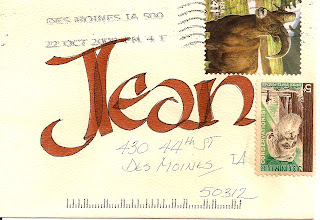 DES MOINES IA 500
22 OCT PM 4 T
Jean
430 44th ST
DES MOINES, IA
50312